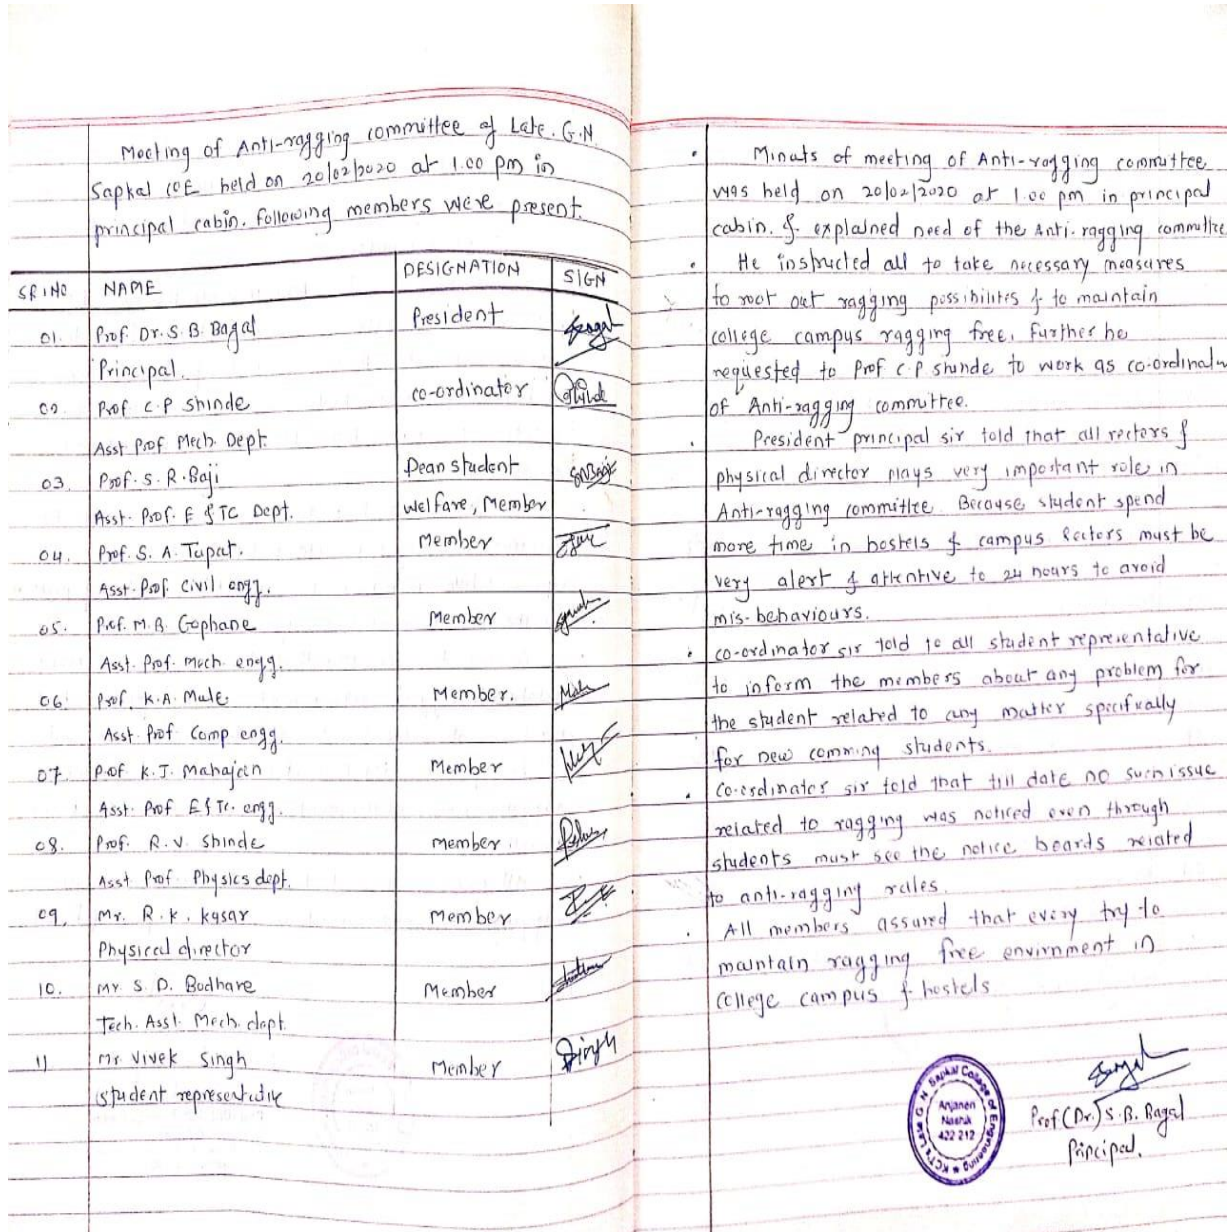 Meeting of Anti-ragging committee of Late. G.N
Sapkal COE held on 20/02/2020 at 1.00 pm in
principal cabin. following members were present.
SR.NO NAME DESIGNATION SIGN
01. Prof. Dr. S. B. Bagal President
Principal.
02 Prof C.P Shinde co-ordinator
Asst Prof Mech. Dept.
03. Prof. S. R. Baji Dean student
Asst. Prof. E & TC Dept. welfare, Member
04. Prof. S. A. Tupat. Member
Asst. Prof. Civil engg.
05. Prof. M.B. Gophane Member
Asst. Prof. Mech. engg.
06. Prof. K.A. Male Member.
Asst. Prof Comp engg.
07. Prof K.J. Mahajan Member
Asst. Prof E&Tc. engg.
08. Prof. R.V. Shinde Member
Asst Prof. Physics dept.
09. Mr. R.K. Kysar Member
Physical director
10. Mr S. D. Budhare Member
Tech. Asst. Mech. dept.
11 Mr Vivek Singh Member
student representative
Minuts of meeting of Anti-ragging committee
was held on 20/02/2020 at 1.00 pm in principal
cabin. & explained need of the Anti-ragging committee
He instructed all to take necessary measures
to root out ragging possibilites & to maintain
college campus ragging free. further he
requested to Prof C.P Shinde to work as co-ordinator
of Anti-ragging committee.
President principal sir told that all rectors &
physical director plays very important role in
Anti-ragging committee. Because student spend
more time in hostels & campus Rectors must be
very alert & attentive to 24 hours to avoid
mis-behaviours.
co-ordinator sir told to all student representative
to inform the members about any problem for
the student related to any matter specifically
for new comming students.
Co-ordinator sir told that till date no such issue
related to ragging was noticed even through
students must see the notice boards related
to anti-ragging rules.
All members assured that every try to
maintain ragging free envirnment in
College campus & hostels
Prof (Dr.) S.B. Bagal
Principal.
KCT's Late G. N. Sapkal College of Engineering
Anjaneri
Nashik
422 212